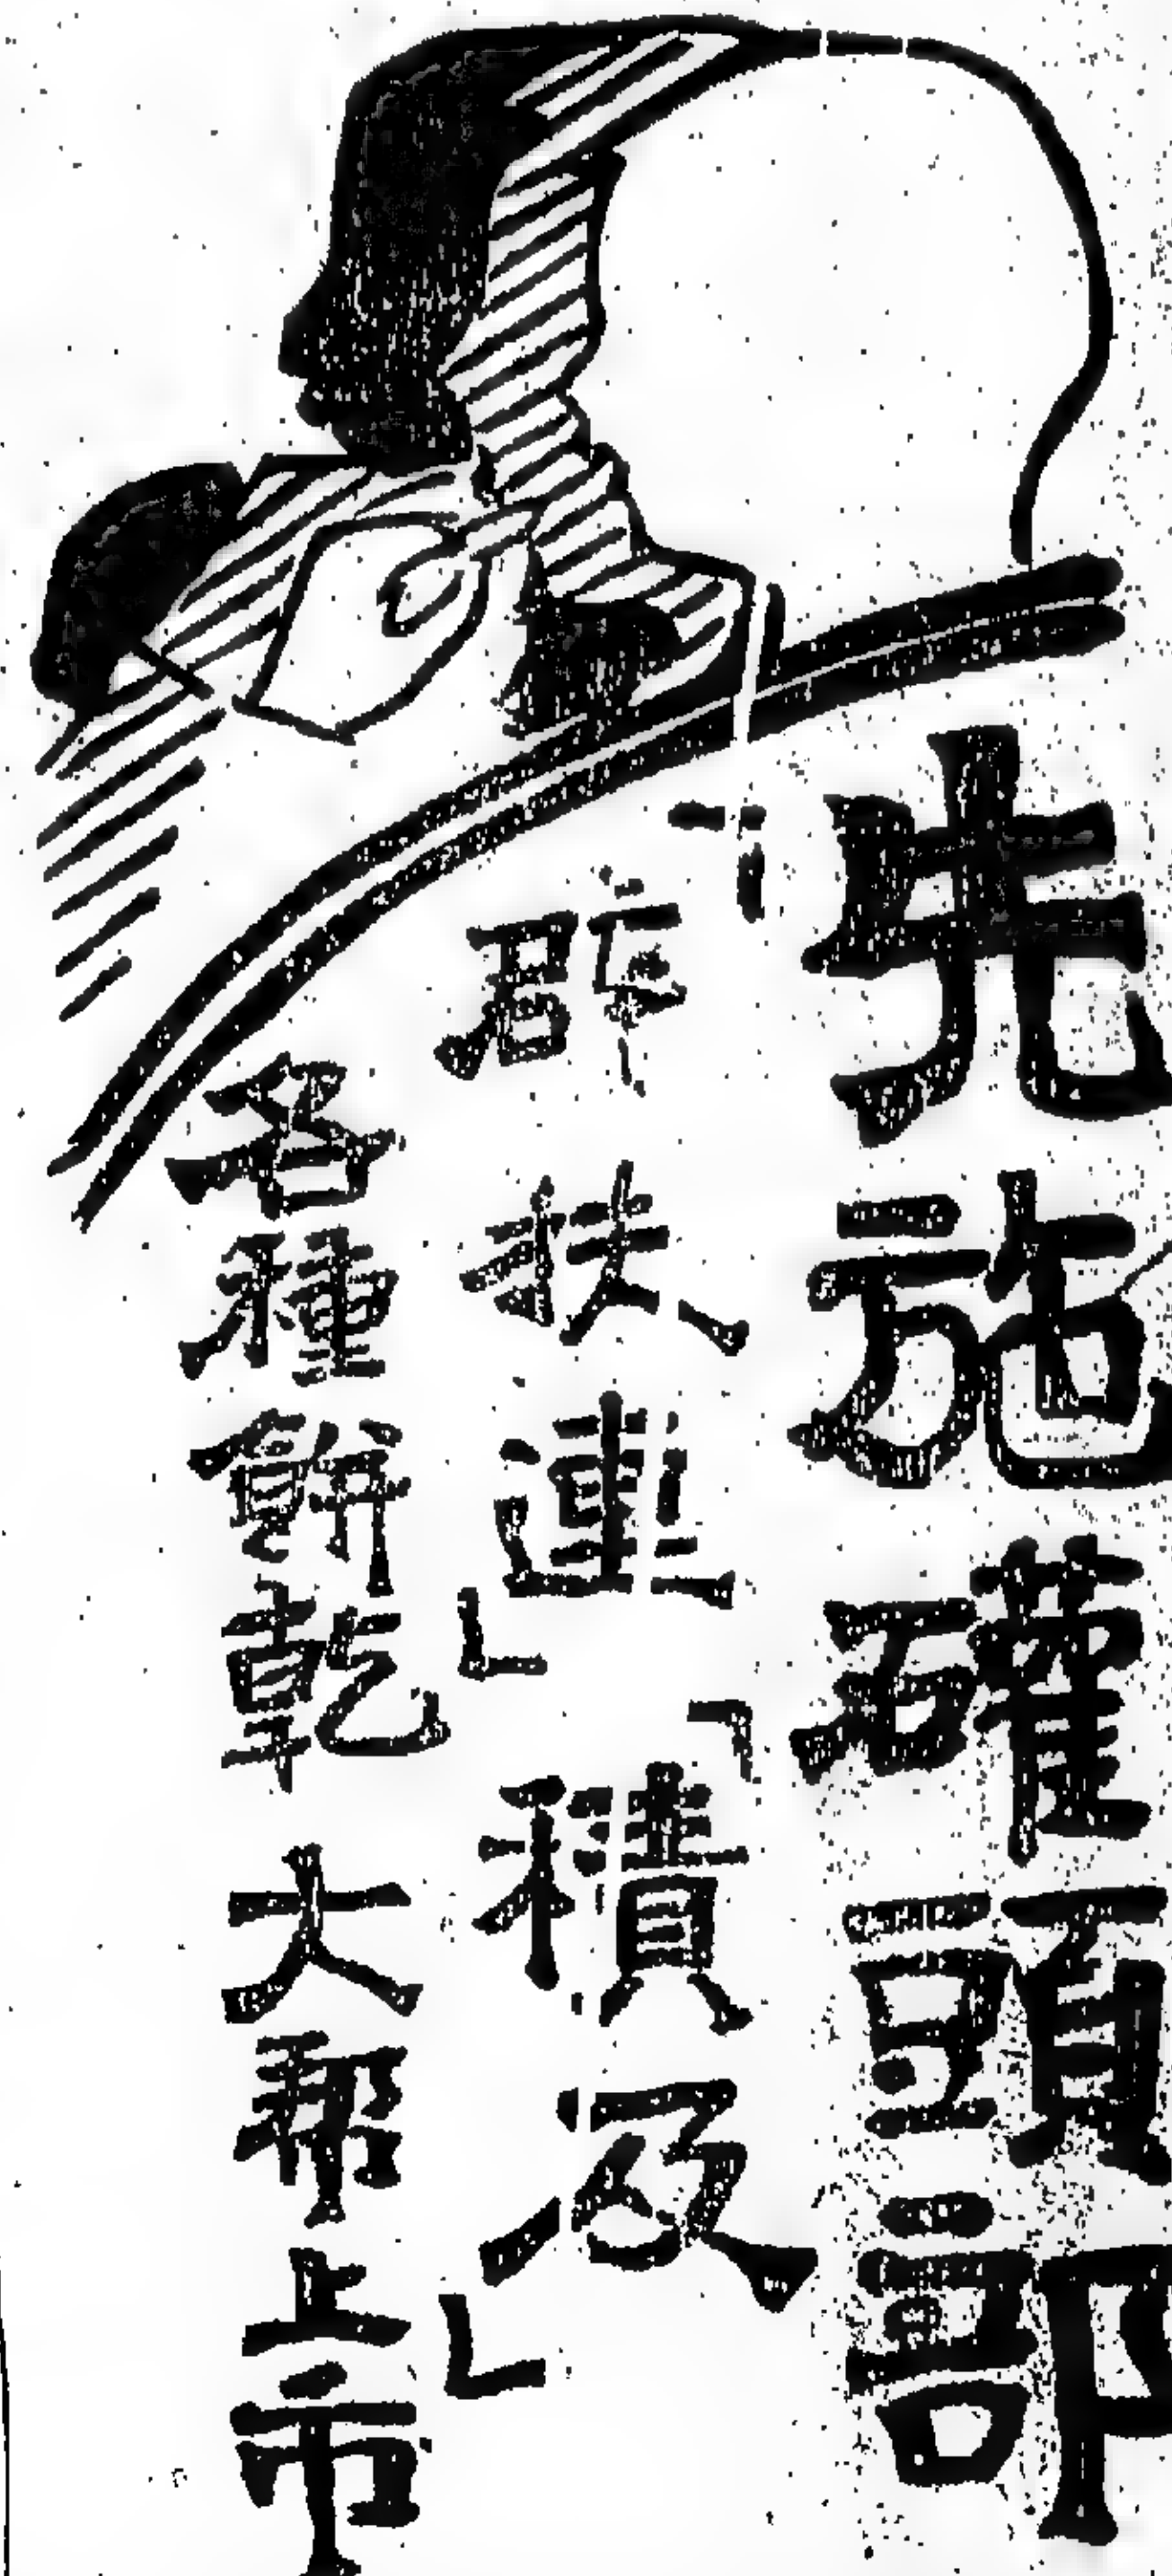 先施礶頭部
「辟扶連」「積及」
各種餅乾大帮上市